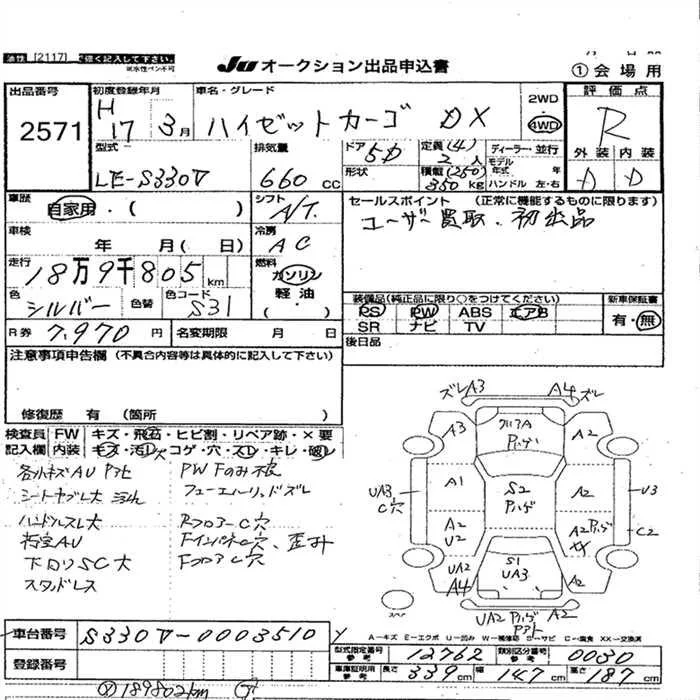 油性 [2117] で強く記入して下さい。
※水性ペン不可
JU オークション出品申込書
① 会場用
出品番号 2571
初度登録年月 H17 3月
車名・グレード ハイゼットカーゴ DX
2WD
4WD
評価点 R
外装 内装
D D
型式 LE-S330V
排気量 660 cc
ドア 5D
形状
定員(4) 2人
積載(250) 350kg
ディーラー・並行
モデル年式 年
ハンドル 左・右
車歴 自家用・( )
シフト A/T
セールスポイント (正常に機能するものに限ります)
ユーザー買取、初出品
車検 年 月( 日)
冷房 AC
走行 18万9千805km
燃料 ガソリン 軽油 ( )
色 シルバー 色替
色コード S31
装備品(純正品に限り○をつけてください)
PS PW ABS エアB
SR ナビ TV
新車保証書
有・無
R券 7,970円
名変期限 月 日
後日品
注意事項申告欄 (不具合内容等は具体的に記入して下さい)
修復歴 有 (箇所 )
検査員記入欄 FW キズ・飛石・ヒビ割・リペア跡・×要
内装 キズ・汚レ・コゲ・穴・スレ・キレ・破レ
各小キズAU P and
シートヤブレ大
ハンドルスレ大
下回リSC大
スタッドレス
PW Fのみ
フューエルリッドズレ
RフロアーC穴
FインパネC穴、歪
FフロアC穴
ズレA3
A4ズレ
A3
A2
A1
S2
A2
UA3
C穴
U3
A2
U2
A2
XX
C2
UA2
A4
S1
UA3
A2
UA2
A2
スペア
A−キズ E−エクボ U−凹み W−補修跡 S−サビ C−腐食 XX−交換済
車台番号 S330V-0003510
登録番号
型式指定番号 参考 12762
類別区分番号 参考 0030
車庫証明用 参考 長さ 339cm 幅 147cm 高さ 187cm
189802km